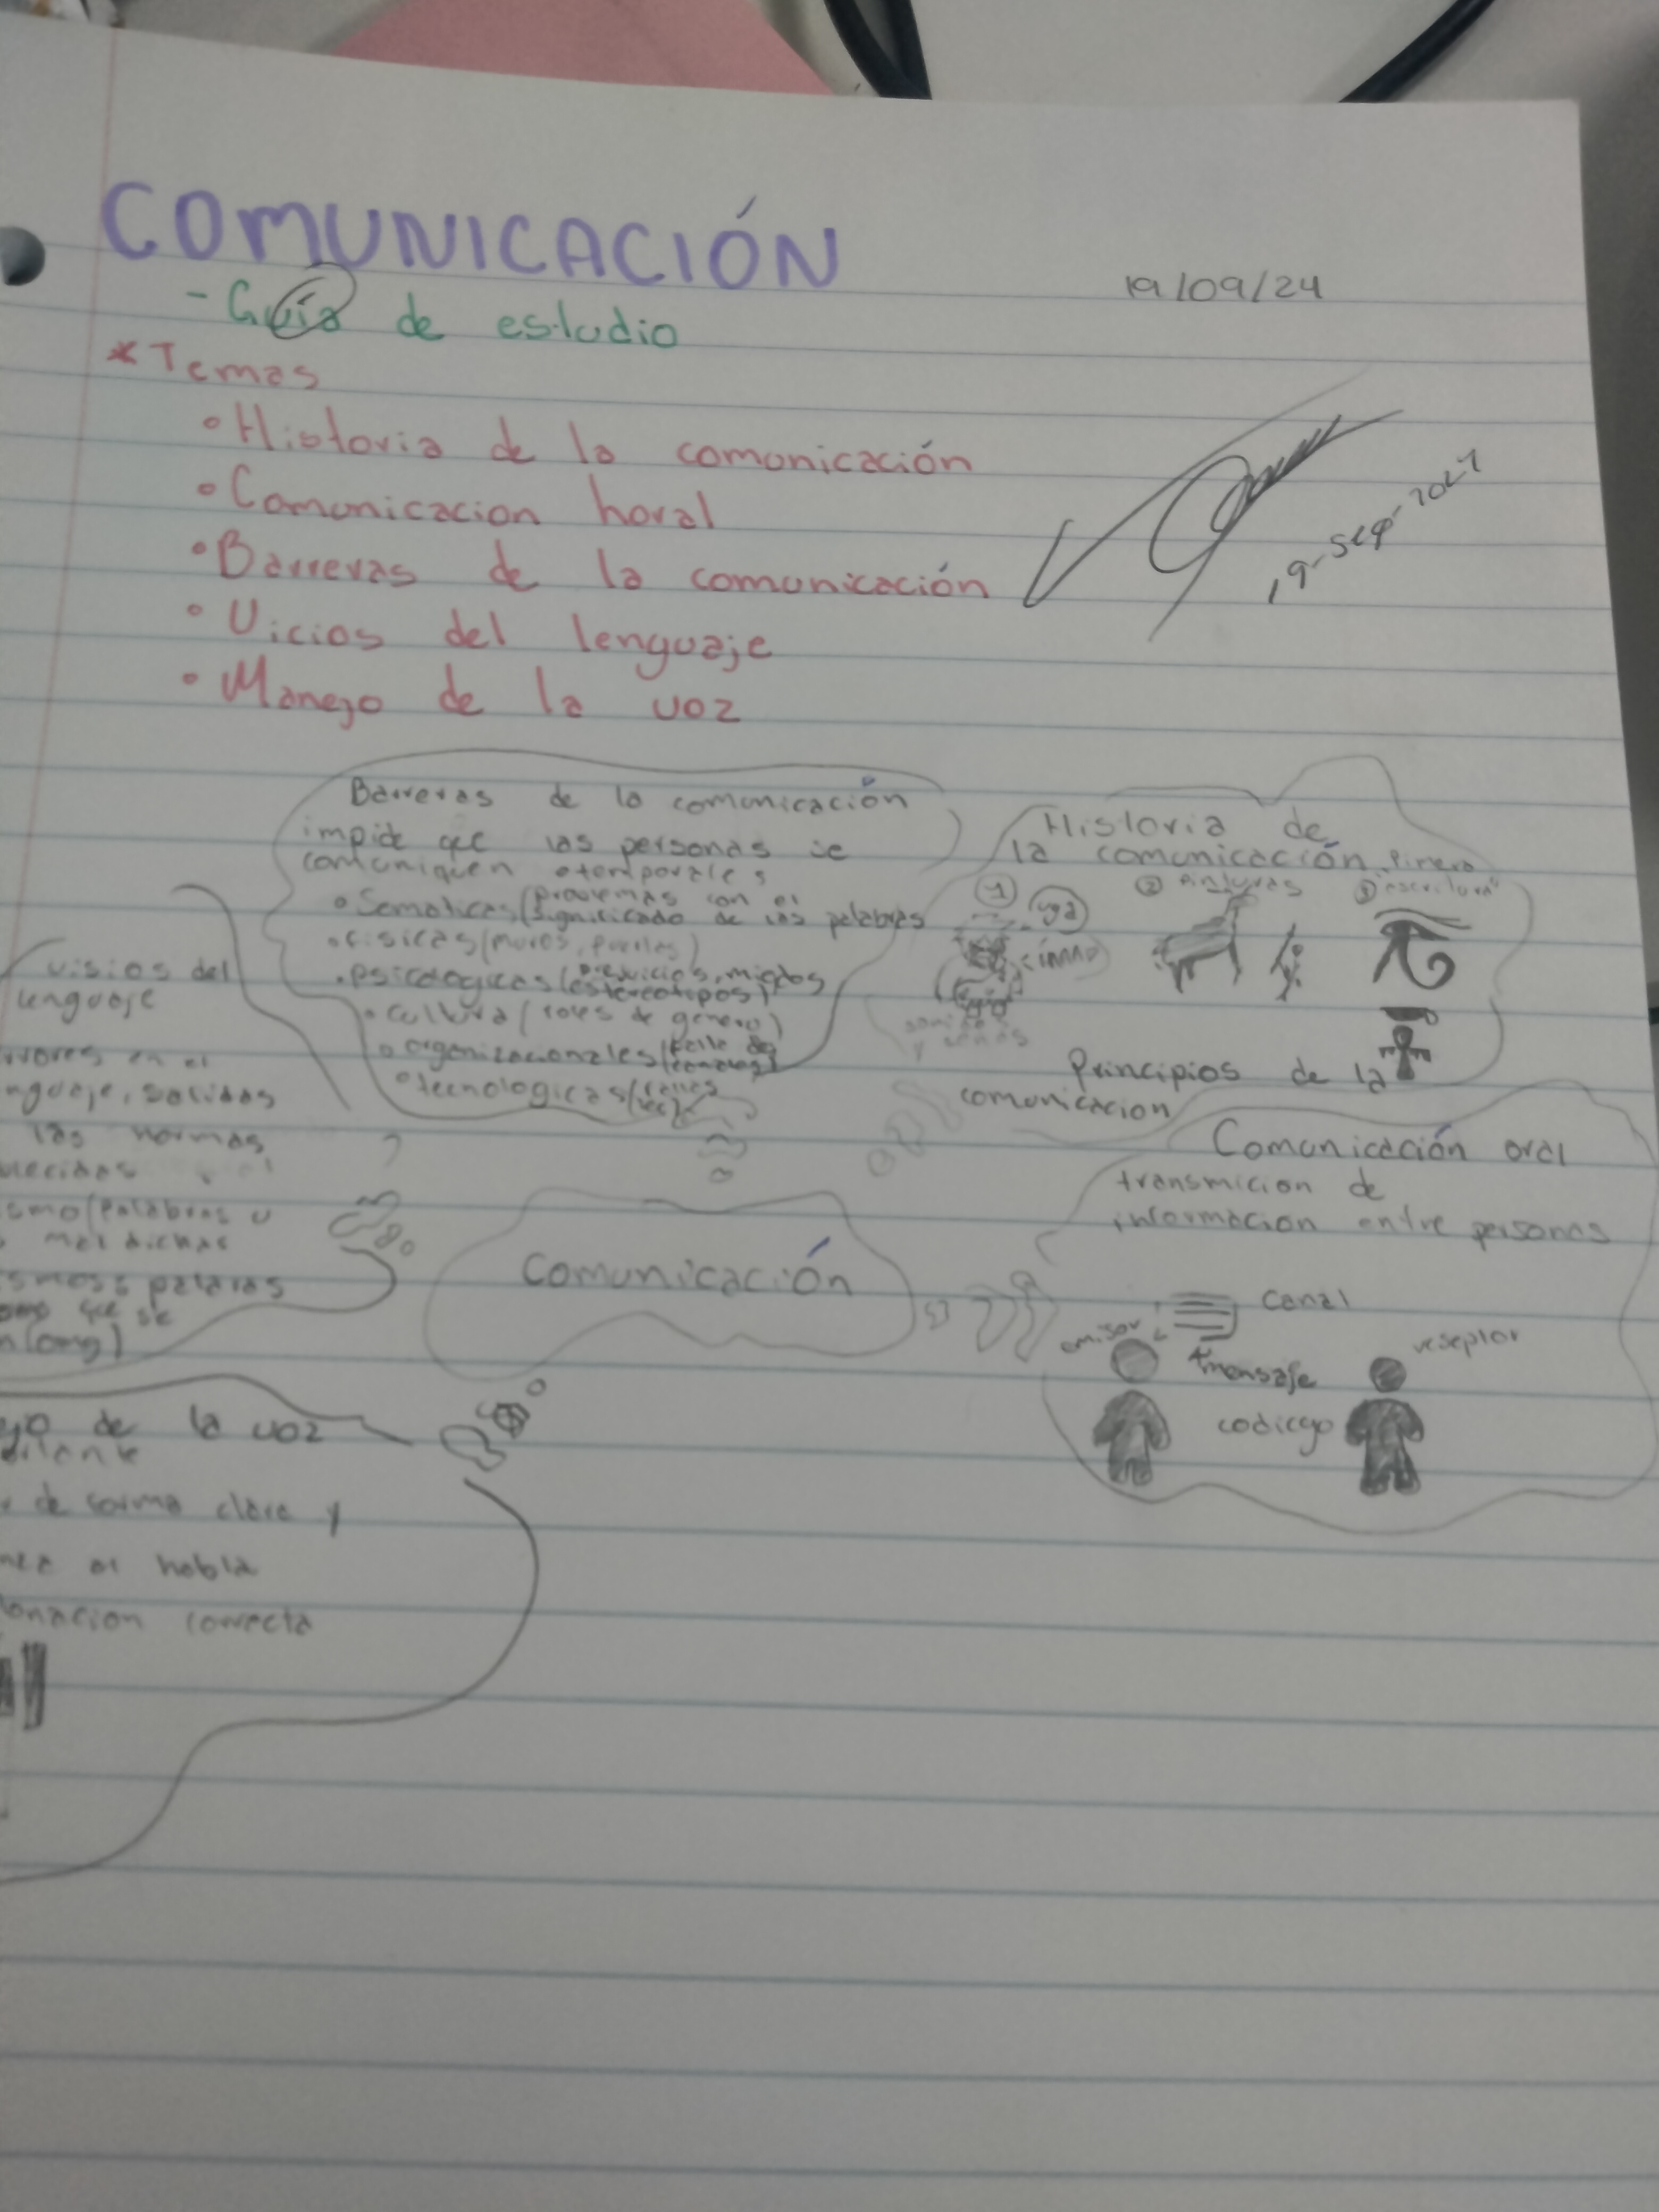 COMUNICACIÓN
19/09/24
- Guía de estudio
* Temas
• Historia de la comunicación
• Comunicacion horal
• Barreras de la comunicación
• Vicios del lenguaje
• Manejo de la voz
19-sep-2024
Barreras de la comunicación
impide que las personas se
comuniquen
• Semoticas (problemas con el
significado de las palabras
• fisicas (muros, 
• psicologicas (prejuicios, miedos
estereotipos)
• cultura (roles de genero)
• organizacionales (falta de
• tecnologicas (
Historia de
la comunicación
1
uga
2 pinturas
3 escritura
y señas
Principios de la
comunicacion
visios del
lenguaje
errores en el
las normas
palabras
que se
Comunicación
Comunicación oral
transmicion de
informacion entre personas
canal
emisor
mensaje
reseptor
codicgo
de la voz
de forma clara y
habla
correcta